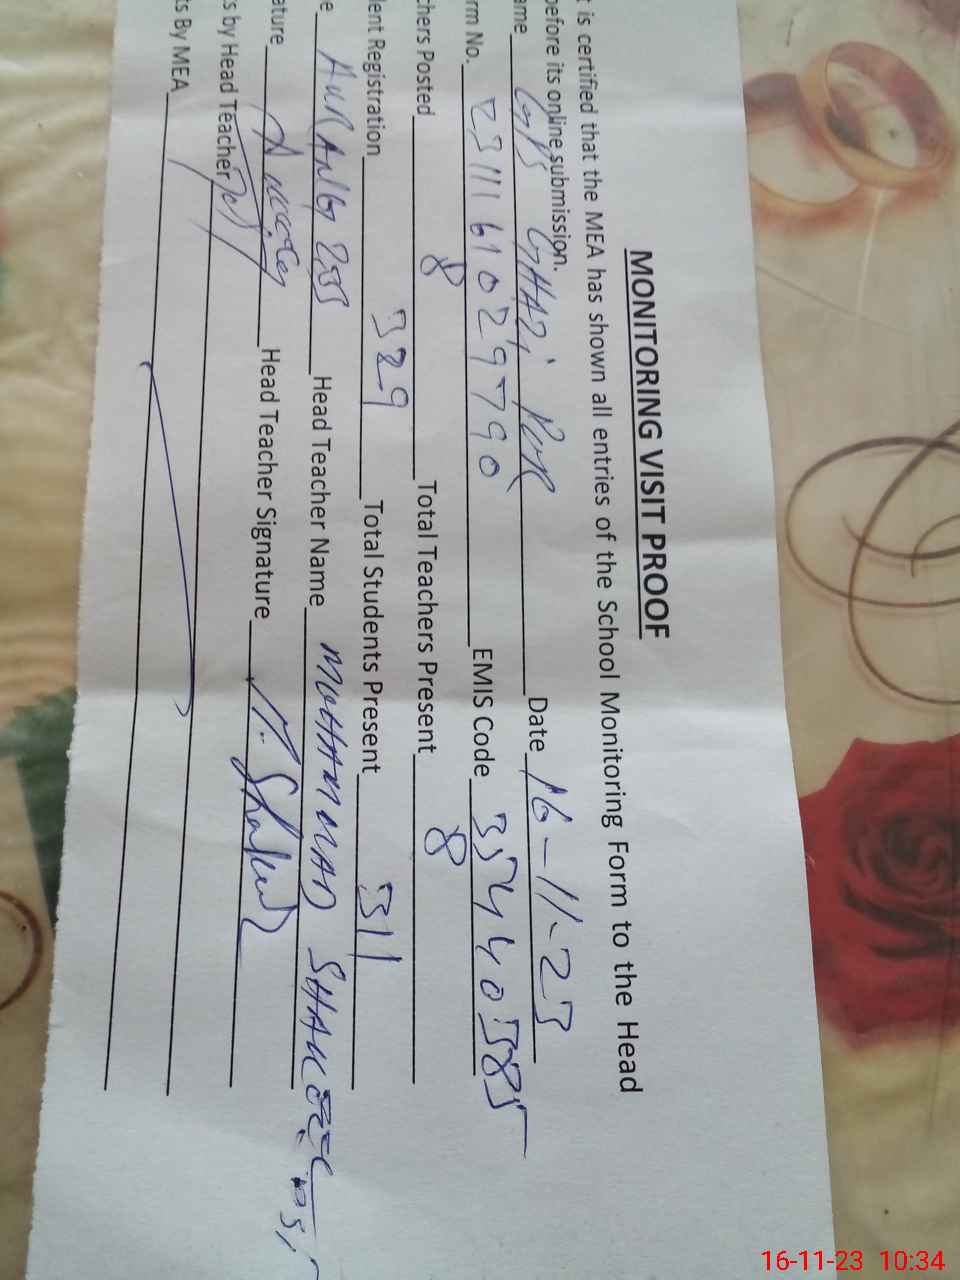 MONITORING VISIT PROOF
t is certified that the MEA has shown all entries of the School Monitoring Form to the Head
before its online submission.
ame GPS GHAZI PUR Date 16-11-23
rm No. 2311161029790 EMIS Code 35440385
chers Posted 8 Total Teachers Present 8
lent Registration 329 Total Students Present 311
e AURANGZEB Head Teacher Name MUHAMMAD SHAKEEL
ature Head Teacher Signature M. Shakeel
s by Head Teacher
ts By MEA
16-11-23 10:34